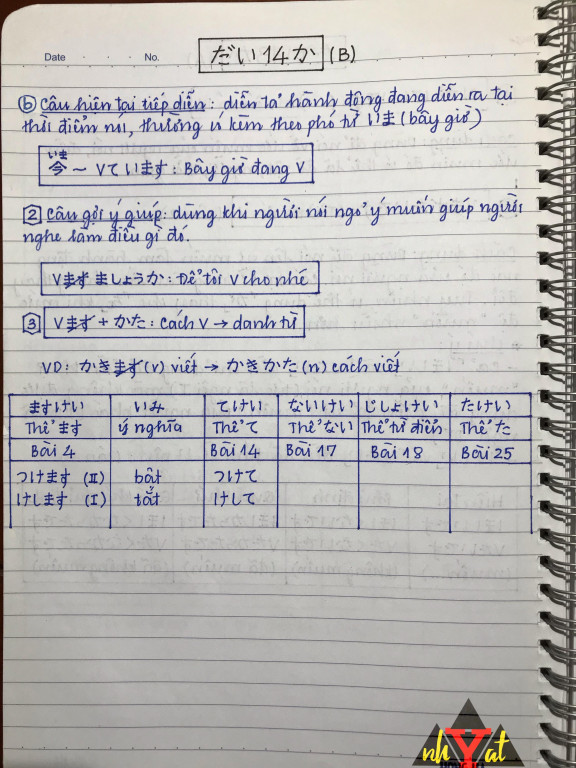 Date . . . No.
だい14か (B)
ⓑ Câu hiện tại tiếp diễn: diễn tả hành động đang diễn ra tại
thời điểm nói, thường ví kèm theo phó từ いま (bây giờ)
いま
今 ~ Vています: Bây giờ đang V
2 Câu gợi ý giúp: dùng khi người nói ngỏ ý muốn giúp người
nghe làm điều gì đó.
Vます ましょうか: Để tôi V cho nhé
3 Vます + かた: cách V → danh từ
VD: かきます (v) viết → かきかた (n) cách viết
ますけい いみ てけい ないけい じしょけい たけい
Thể ます ý nghĩa Thể て Thể ない Thể tự điển Thể た
Bài 4 Bài 14 Bài 17 Bài 18 Bài 25
つけます (II) bật つけて
けします (I) tắt けして
nhYat